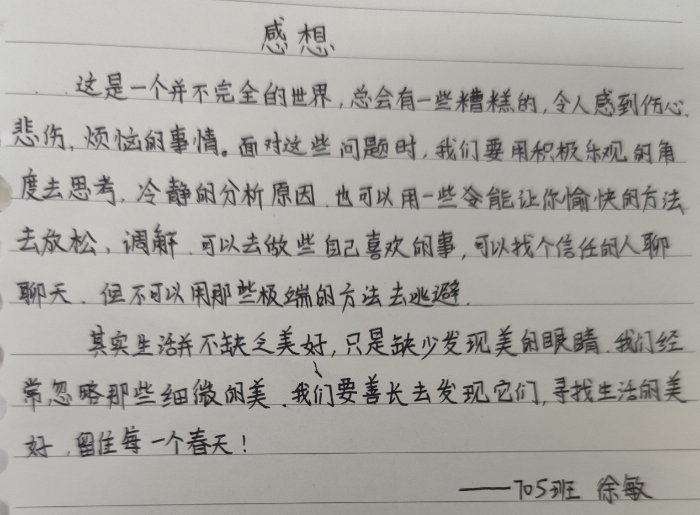 感想
这是一个并不完全的世界,总会有一些糟糕的,令人感到伤心、
悲伤,烦恼的事情。面对这些问题时,我们要用积极乐观的角
度去思考,冷静的分析原因,也可以用一些能让你愉快的方法
去放松,调解,可以去做些自己喜欢的事,可以找个信任的人聊
聊天、但不可以用那些极端的方法去逃避.
其实生活并不缺乏美好,只是缺少发现美的眼睛.我们经
常忽略那些细微的美、我们要善长去发现它们,寻找生活的美
好,留住每一个春天!
——705班 徐敏